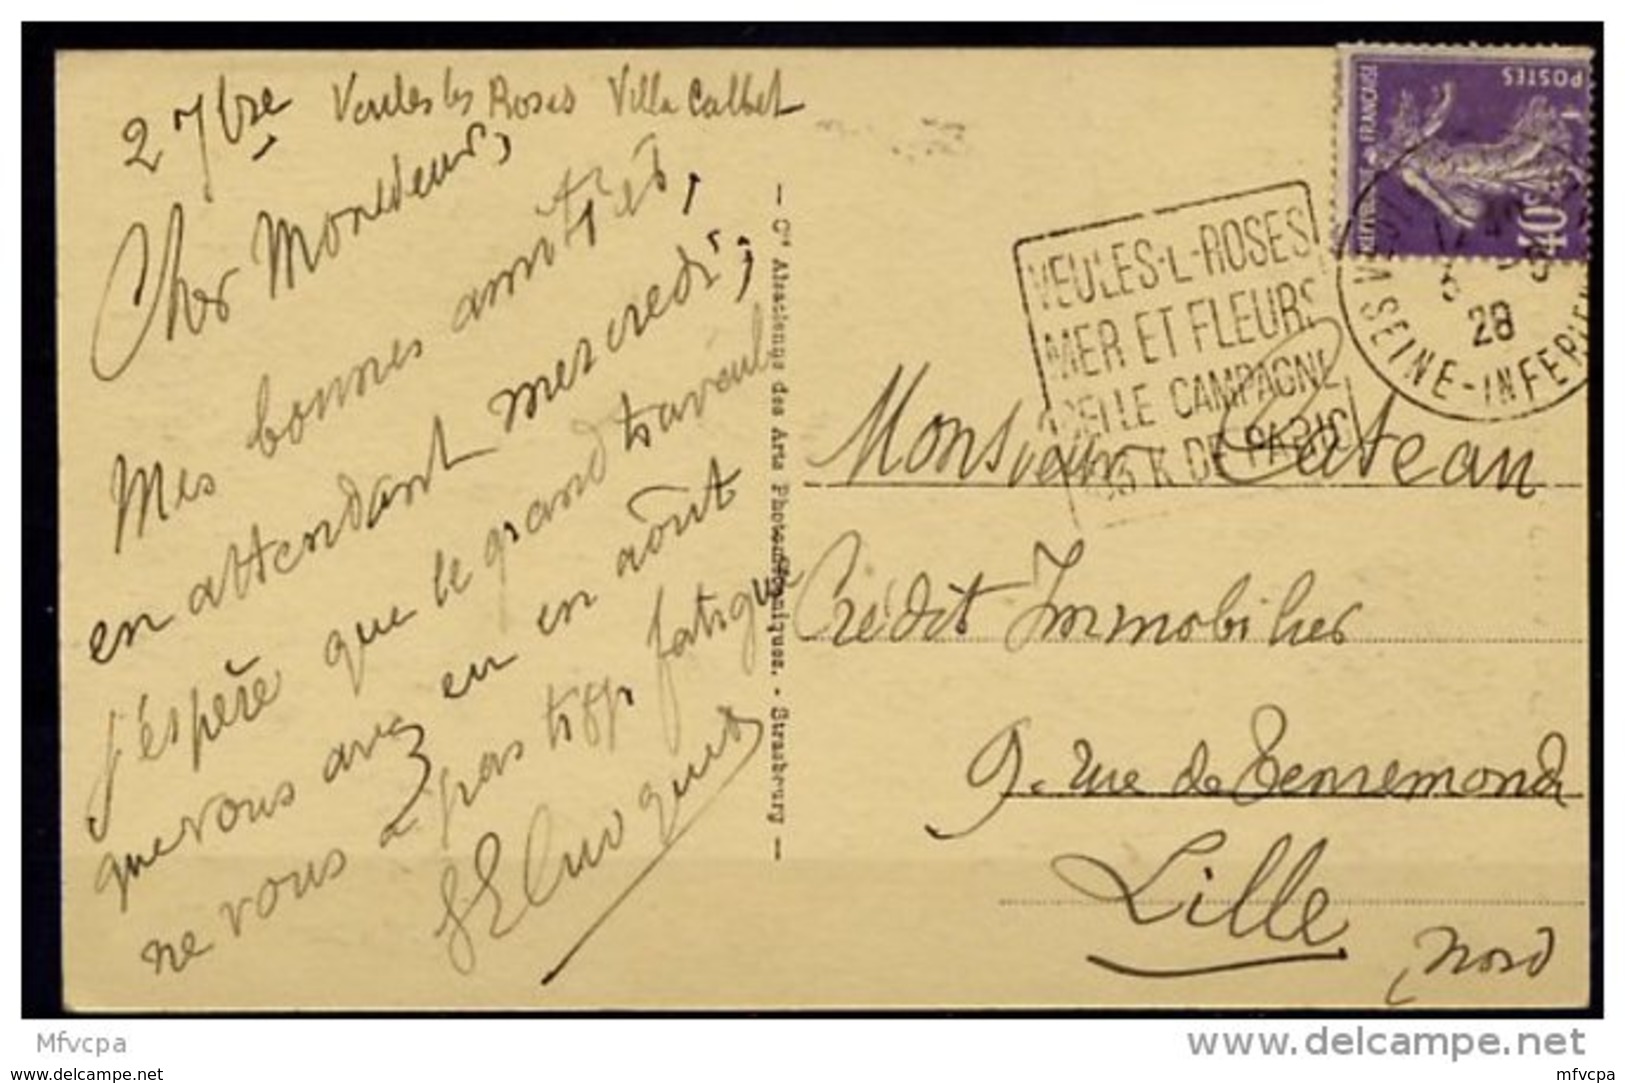 2 7bre Veules les Roses Villa Calbet
Cher Monsieur,
Mes bonnes amitiés,
en attendant mercredi;
j'espère que le grand travail
que vous avez eu en août
ne vous a pas trop fatigué
— Cie Alsacienne des Arts Photomécaniques. - Strasbourg —
POSTES
REPUBLIQUE FRANCAISE
40c
VEULES-L-ROSES
MER ET FLEURS
BELLE CAMPAGNE
K DE PARIS
28
SEINE-INFERIEURE
Monsieur Cateau
Crédit Immobilier
9. rue de Tenremonde
Lille
Nord
Mfvcpa
www.delcampe.net
www.delcampe.net
mfvcpa